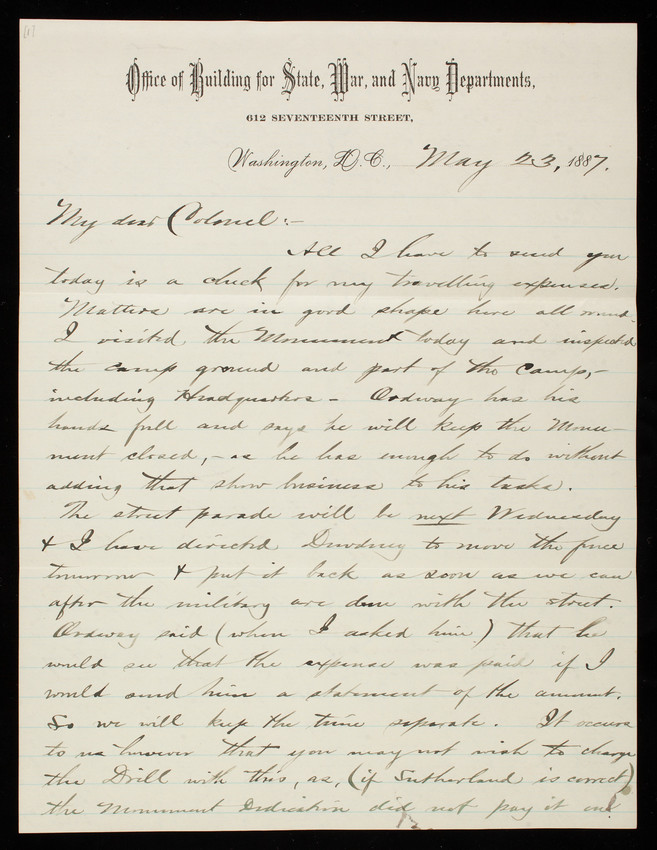 (1)
Office of Building for State, War, and Navy Departments,
612 SEVENTEENTH STREET,
Washington, D.C., May 23, 1887.
My dear Colonel:-
All I have to send you
today is a check for my travelling expenses.
Matters are in good shape here all round.
I visited the Monument today and inspected
the camp ground and part of the camp,-
including Headquarters - Ordway has his
hands full and says he will keep the Monu-
ment closed,- as he has enough to do without
adding that show business to his tasks.
The street parade will be next Wednesday
& I have directed Dewdney to move the fence
tomorrow & put it back as soon as we can
after the military are done with the street.
Ordway said (when I asked him) that he
would see that the expense was paid if I
would send him a statement of the amount.
So we will keep the time separate. It occurs
to us however that you may not wish to charge
the Drill with this, as, (if Sutherland is correct)
the Monument Dedication did not pay it